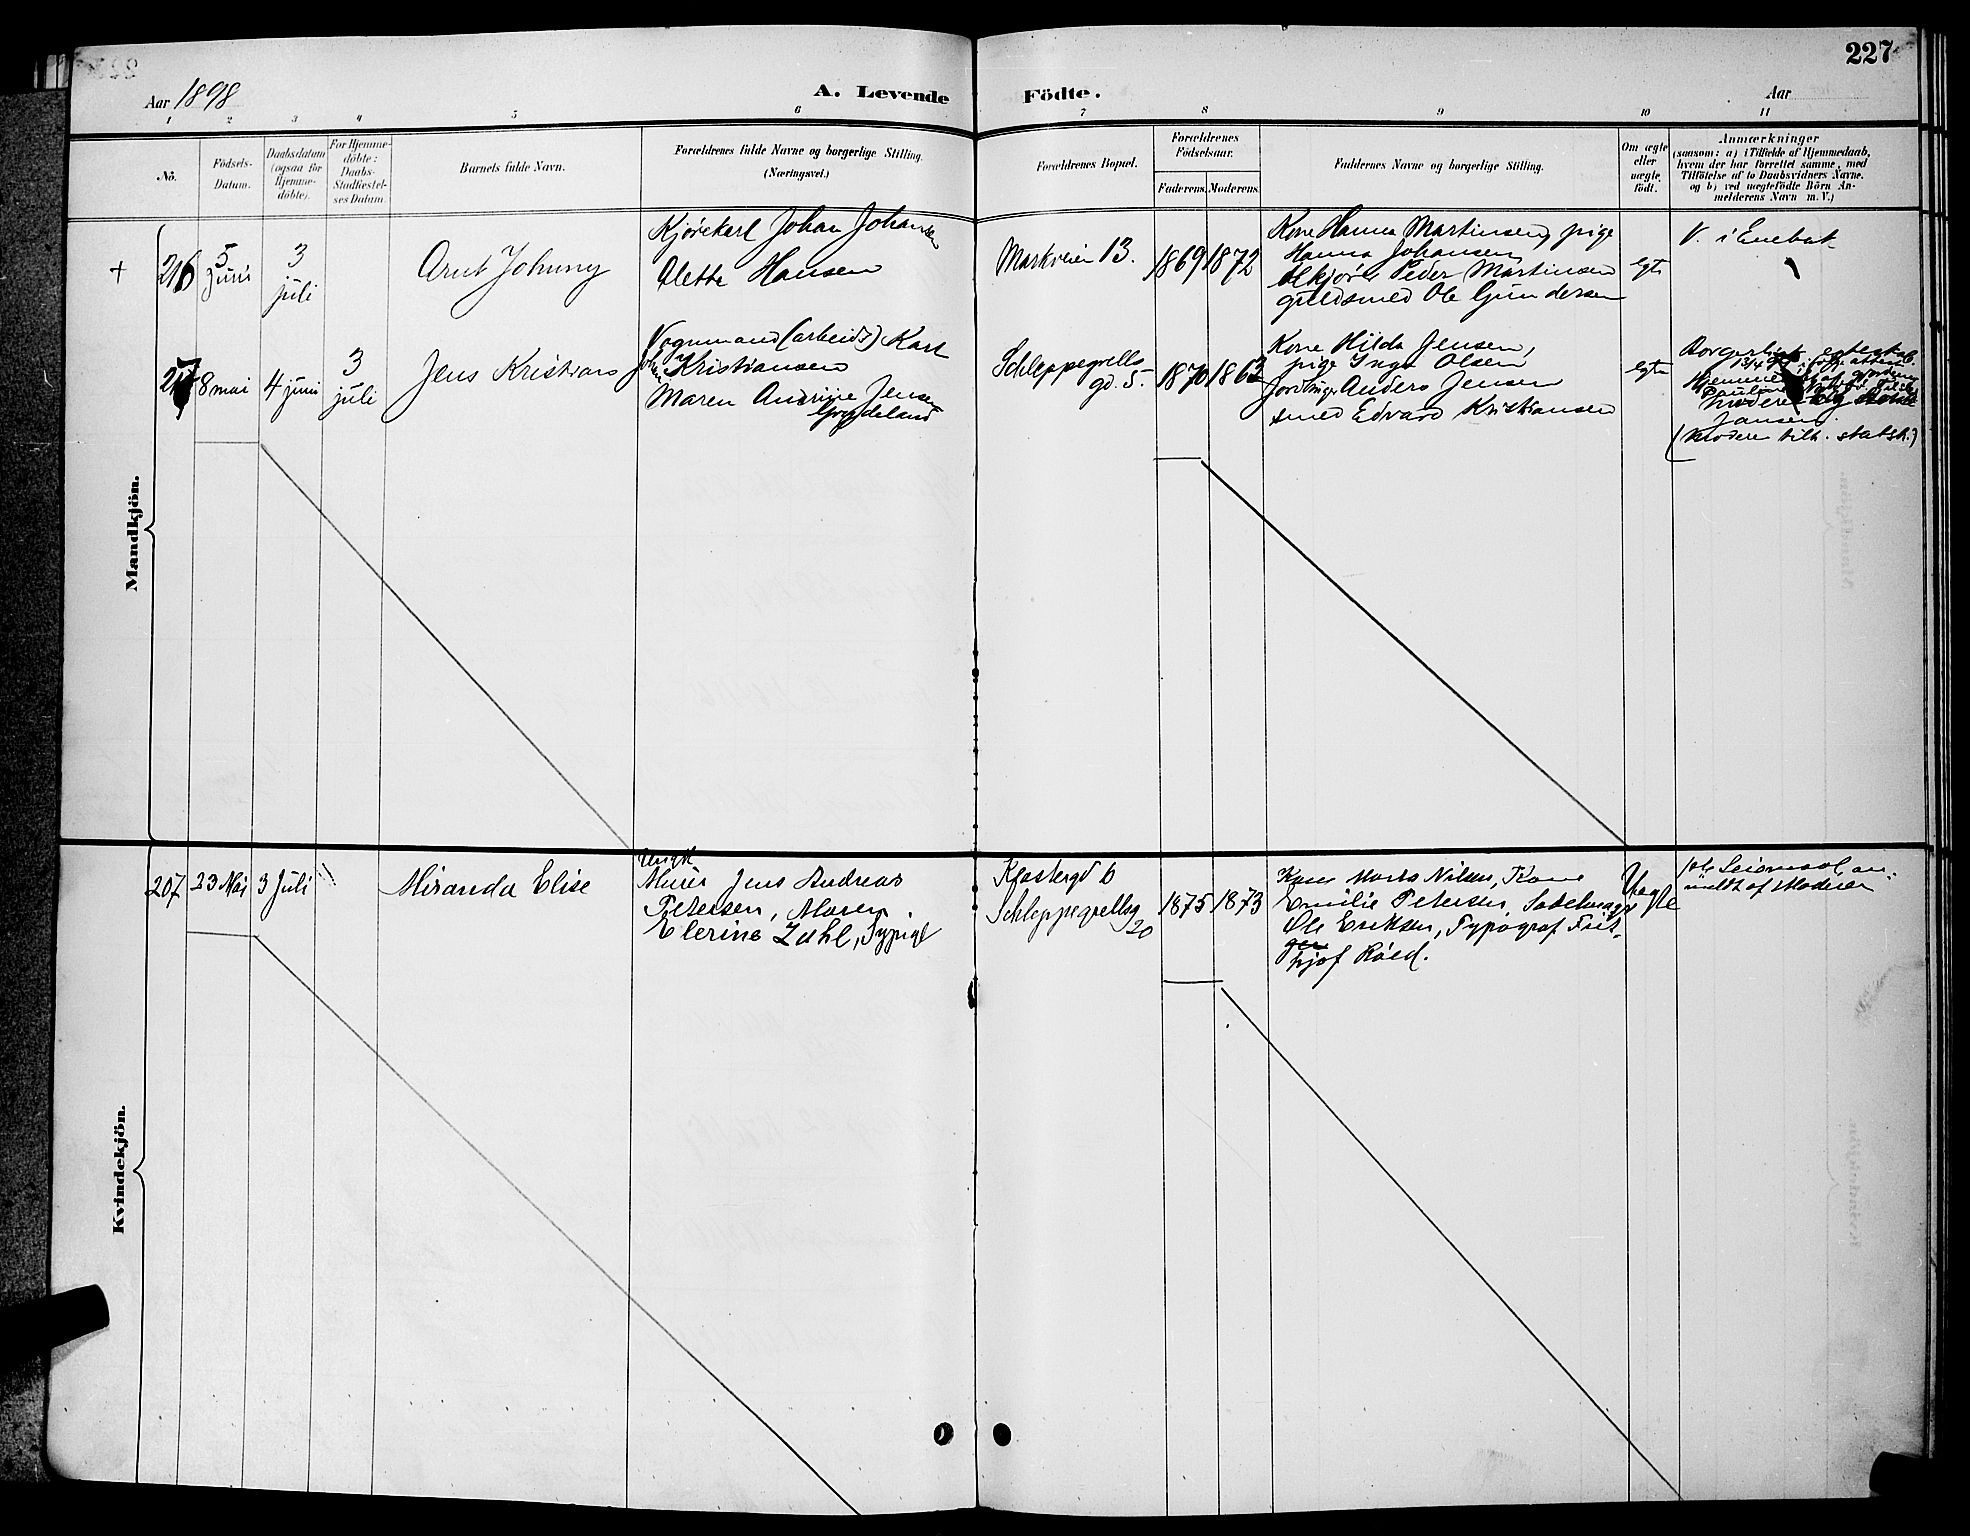 227
Aar 1898
A. Levende Födte.
Aar
1 2 3 4 5 6 7 8 9 10 11
No.
Födsels-
Datum.
Daabsdatum
(ogsaa for
Hjemme-
döbte).
For Hjemme-
döbte:
Daabs-
Stadfæstel-
ses Datum.
Barnets fulde Navn.
Forældrenes fulde Navne og borgerlige Stilling.
(Næringsvei.)
Forældrenes Bopæl.
Forældrenes
Födselsaar.
Faderens. Moderens.
Faddernes Navne og borgerlige Stilling.
Om ægte
eller
uægte
födt.
Anmærkninger
(saasom: a) i Tilfælde af Hjemmedaab,
hvem der har forrettet samme, med
Tilföielse af to Daabsvidners Navne.
og b) ved uægtefödte Börn An-
melderens Navn m. V.)
Mandkjön.
+
216
5
juni
3
juli
Arnt Johnny
Kjørekarl Johan Johansen
Alette Hansen
Markveien 13.
1869 1872
Kone Hanna Martinsen, pige
Hanna Johansen
Ølkjører Peder Martinsen
guldsmed Ole Gundersen
egte
V. i Enebak
217
8 mai
4 juni
3
juli
Jens Kristian
Vognmand (arbeids) Karl
Joh. Kristiansen
Maren Andrine Jensen
Grydeland
Schleppegrells
gd. 5.
1870 1863
Kone Hilda Jensen,
pige Inga Olsen,
Anders Jensen
smed Edvard Kristiansen
egte
Borgerligt egteskab
13/4
Jansen.
(Moder tilh. statsk.)
Kvindekjön.
207
23 Mai
3 Juli
"
Miranda Elise
Ungk
Murer Jens Andreas
Petersen, Maren
Elerine Zuhl, Sypige
6
Schleppegrellsg
20
1875 1873
Kone Marts Nilsen, Kone
Emilie Petersen, Sadelmager
Ole Eriksen, Typograf Frit-
hjof Röed.
Uegte
1ste Leiermaal, an-
meldt af Moderen